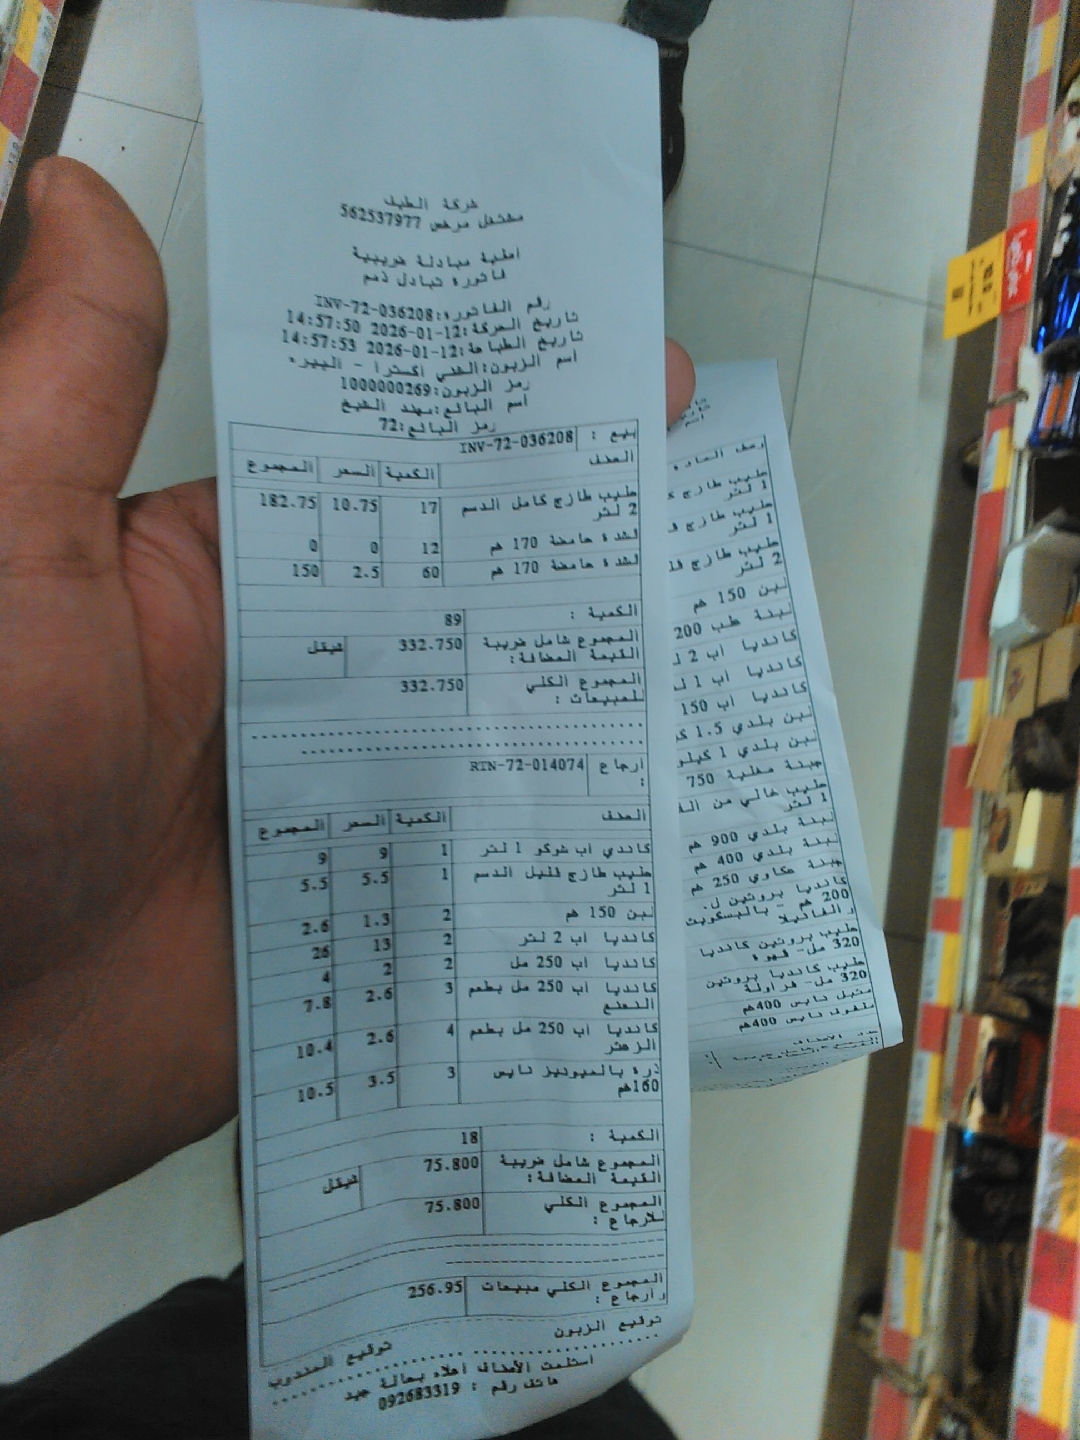 شركة الطيف
مشتغل مرخص 562537977
اصلية مبادلة ضريبية
فاتورة تبادل ذمم
رقم الفاتورة: INV-72-036208
تاريخ الحركة: 2026-01-12 14:57:50
تاريخ الطباعة: 2026-01-12 14:57:53
اسم الزبون: الشني اكسترا - البيره
رمز الزبون: 1000000269
اسم البائع: مهند الشيخ
رمز البائع: 72
بيع : INV-72-036208
الصنف الكمية السعر المجموع
حليب طازج كامل الدسم 17 10.75 182.75
2 لتر
قشدة حامضة 170 غم 12 0 0
قشدة حامضة 170 غم 60 2.5 150
الكمية : 89
المجموع شامل ضريبة 332.750 شيقل
القيمة المضافة:
المجموع الكلي 332.750
للمبيعات :
ارجاع RTN-72-014074
:
الصنف الكمية السعر المجموع
كاندي اب شوكو 1 لتر 1 9 9
حليب طازج قليل الدسم 1 5.5 5.5
1 لتر
لبن 150 غم 2 1.3 2.6
كانديا اب 2 لتر 2 13 26
كانديا اب 250 مل 2 2 4
كانديا اب 250 مل بطعم 3 2.6 7.8
النعنع
كانديا اب 250 مل بطعم 4 2.6 10.4
الزعتر
ذرة بالميونيز تايس 3 3.5 10.5
160غم
الكمية : 18
المجموع شامل ضريبة 75.800 شيقل
القيمة المضافة:
المجموع الكلي 75.800
للارجاع :
المجموع الكلي مبيعات 256.95
وارجاع :
توقيع الزبون توقيع المندوب
استلمت الأصناف اعلاه بحالة جيد
هاتف رقم : 092683319
وصف المادة
حليب طازج
1 لتر
حليب طازج
1 لتر
حليب طازج
2 لتر
لبن 150 غم
لبنة طب 200
كانديا اب 2
كانديا اب 1
كانديا اب 150
لبن بلدي 1.5
لبن بلدي 1 كيلو
جبنة مغلية 750
حليب خالي من
1 لتر
لبنة بلدي 900 غم
لبنة بلدي 400 غم
جبنة عكاوي 250 غم
كانديا بروتين ل.
200 غم - بالبسكويت
و الفانيلا
حليب بروتين كانديا
320 مل- قهوة
حليب كانديا بروتين
320 مل- فراولة
متبل تايس 400غم
ملفوف تايس 400غم